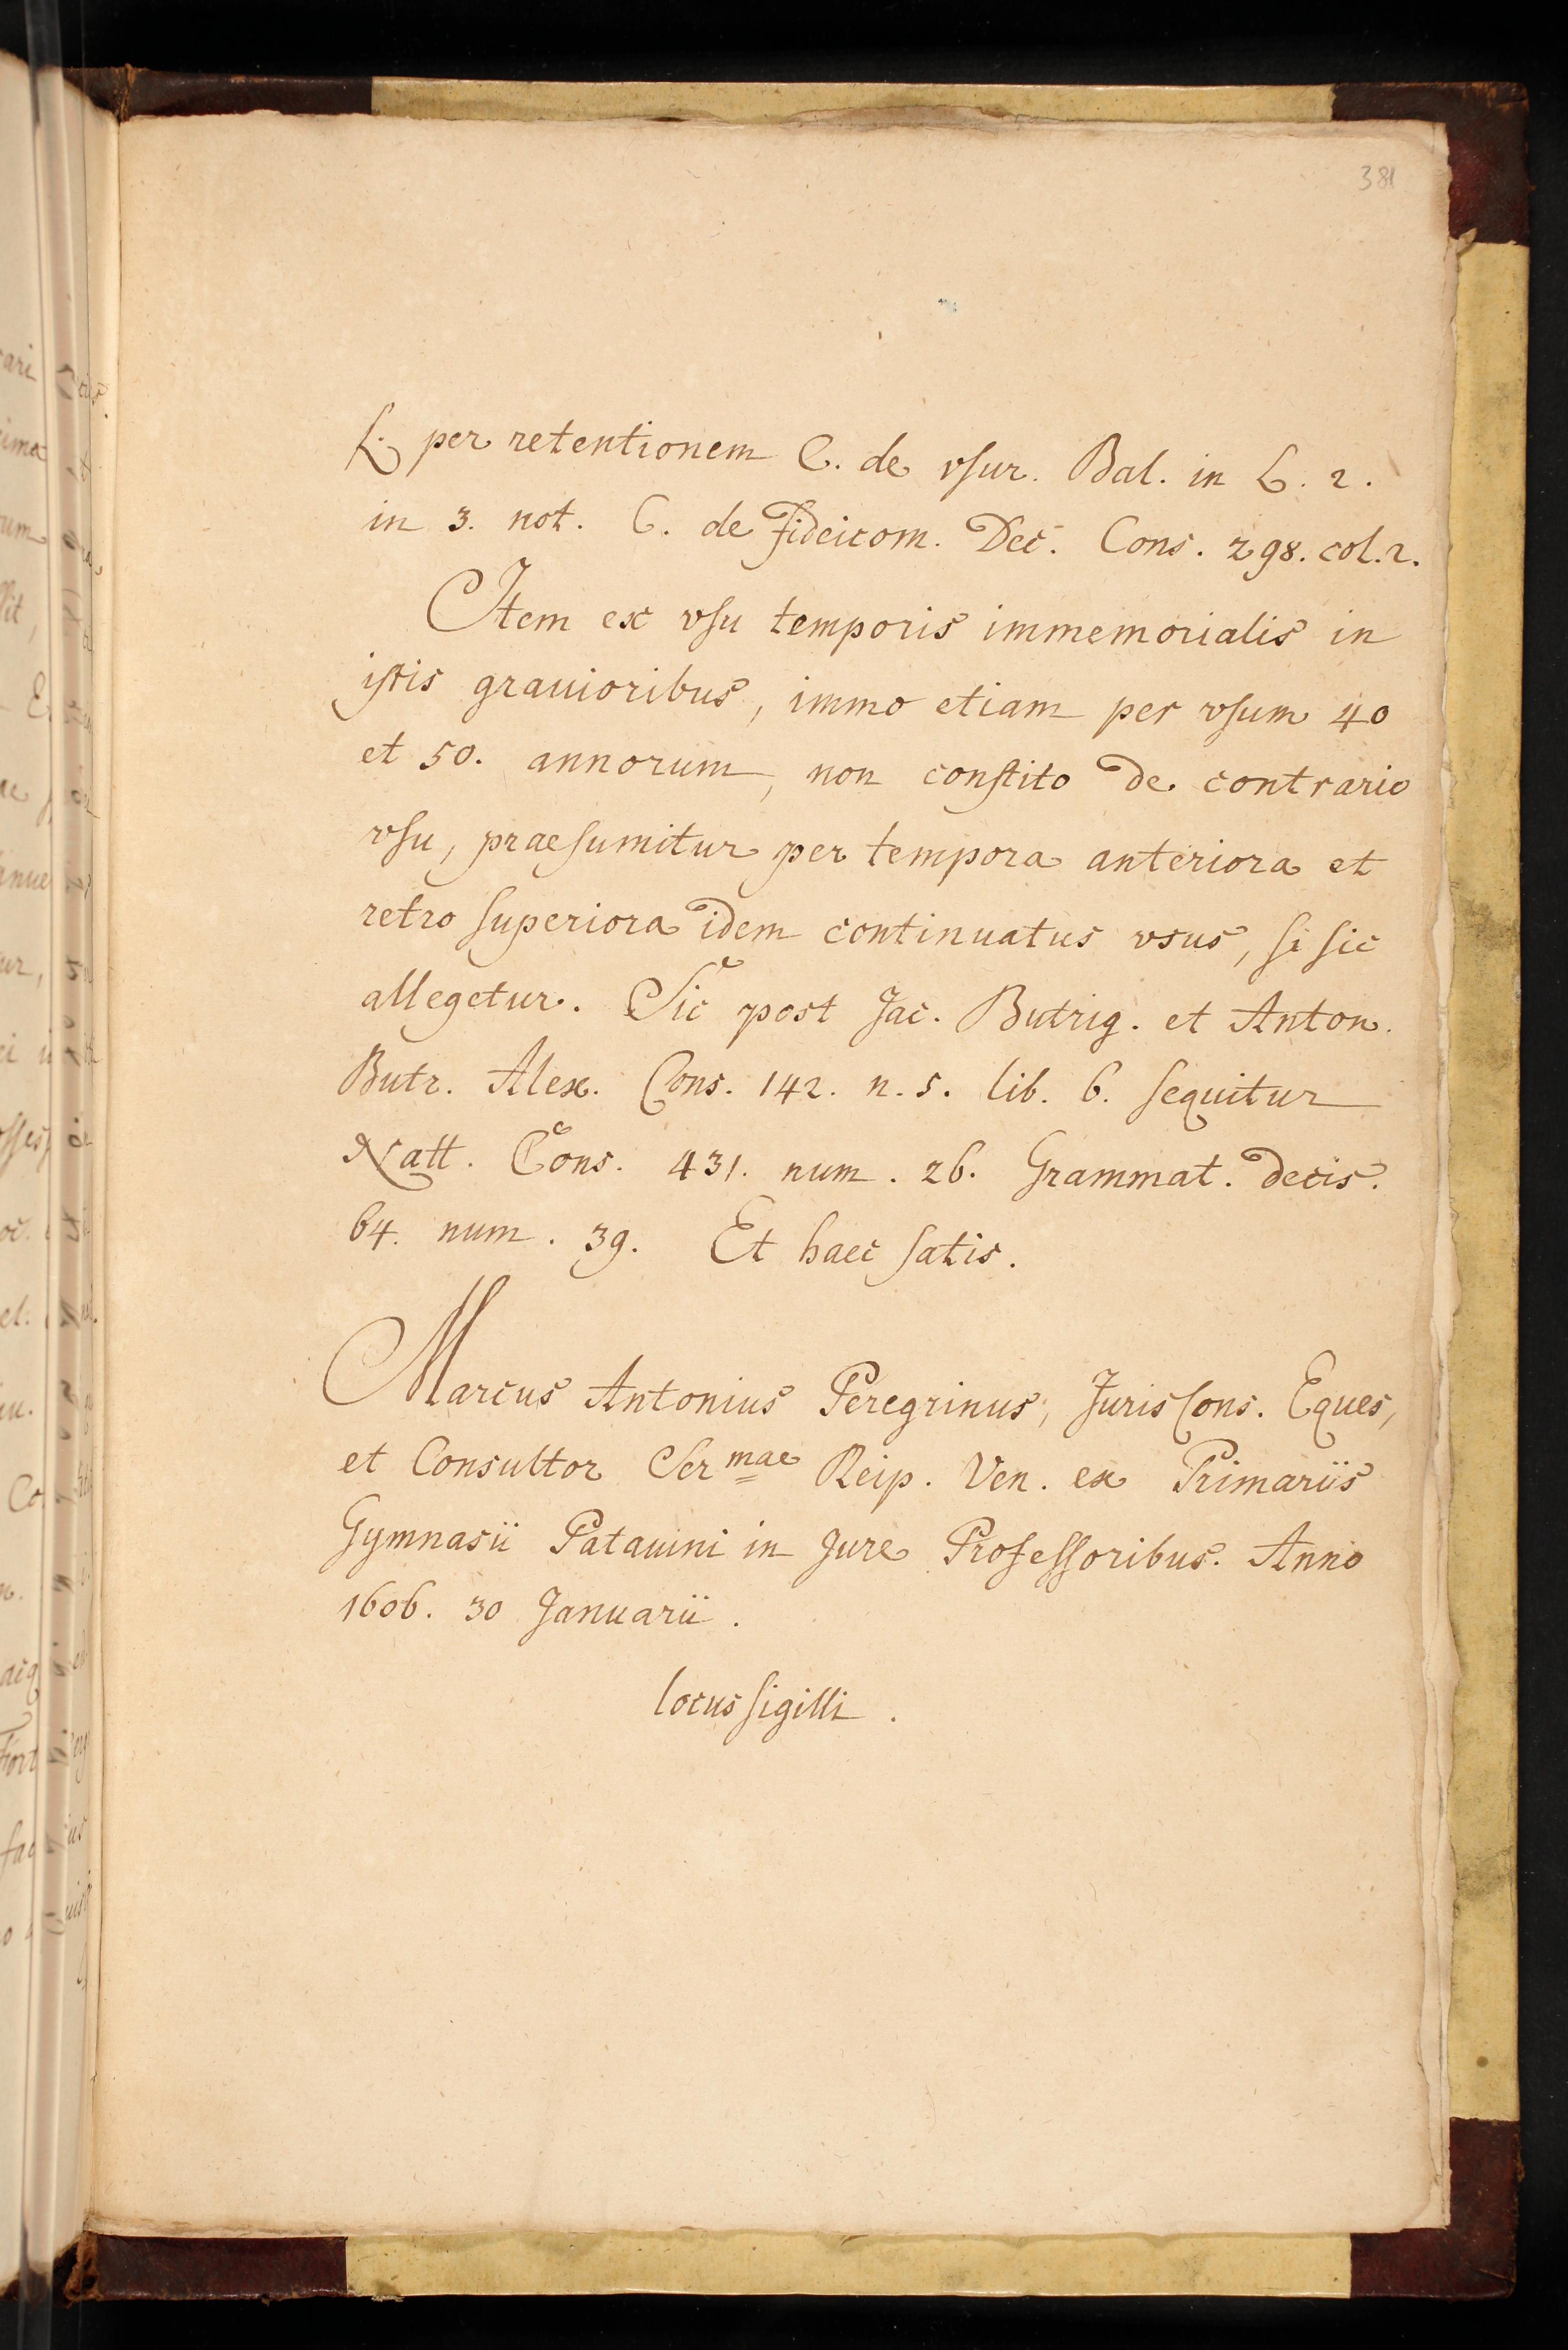 381
L. per retentionem C. de vſur. Bal. in L. 2.
in 3. not. C. de fideicom. Dec. Cons. 298. col. 2.
Item ex vſu temporis immemorialis in
iſtis grauioribus, immo etiam per vſum 40
et 50. annorum, non conſtito de contrario
vſu, praeſumitur per tempora anteriora et
retro ſuperiora idem continuatus vsus, ſi ſic
allegetur. Sic post Jac. Butrig. et Anton.
Butr. Alex. Cons. 142. n. 5. lib. 6. ſequitur
Natt. Cons. 431. num. 26. Grammat. decis.
64. num. 39. Et haec ſatis.
Marcus Antonius Peregrinus, JurisCons. Eques,
et Consultor Sermae Reip. Ven. ex Primariis
Gymnasii Patauini in Jure Profeſſoribus. Anno
1606. 30 Januarii.
locus ſigilli.